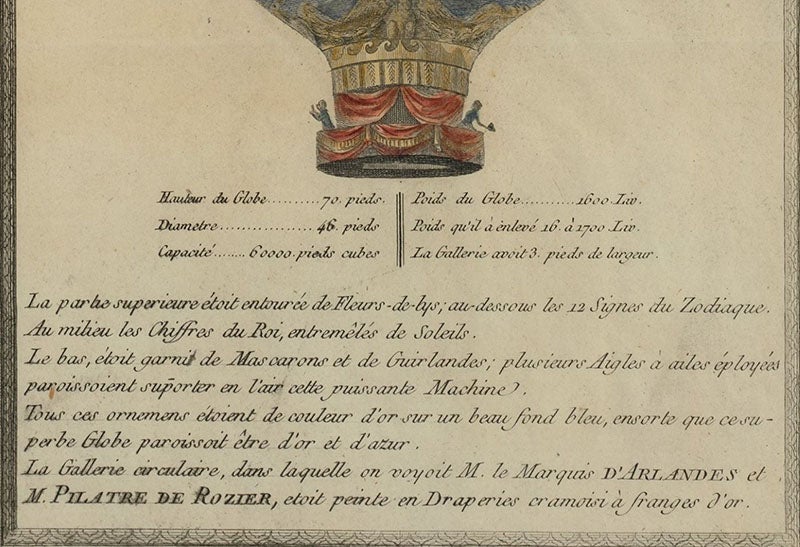 Hauteur du Globe..........70. pieds.
Diametre.................46. pieds
Capacité........60000. pieds cubes
Poids du Globe...........1600. Liv.
Poids qu'il à énlevé 16. à 1700 Liv.
La Gallerie avoit 3. pieds de largeur.
La partie superieure étoit entourée de Fleurs-de-lys; au-dessous les 12 Signes du Zodiaque.
Au milieu les Chiffres du Roi, entremêlés de Soleils.
Le bas, étoit garni de Mascarons et de Guirlandes; plusieurs Aigles à ailes éployées
paroissoient suporter en l'air cette puissante Machine.
Tous ces ornemens étoient de couleur d'or sur un beau fond bleu, ensorte que ce su-
perbe Globe paroissoit être d'or et d'azur.
La Gallerie circulaire, dans laquelle on voyoit M. le Marquis D'ARLANDES et
M. PILATRE DE ROZIER, etoit peinte en Draperies cramoisi à franges d'or.